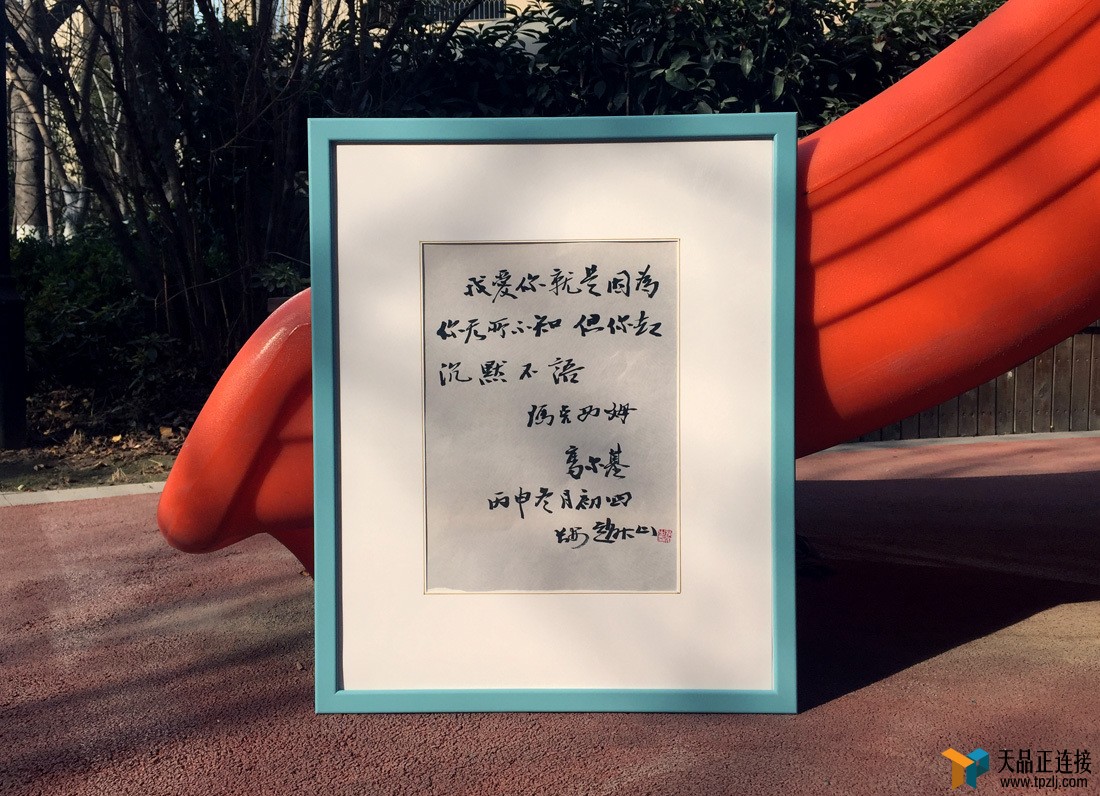 我愛你就是因為
你无所不知 但你却
沉默不語
瑪克西姆
高尔基
丙申冬月初四
天品正连接
www.tpzlj.com